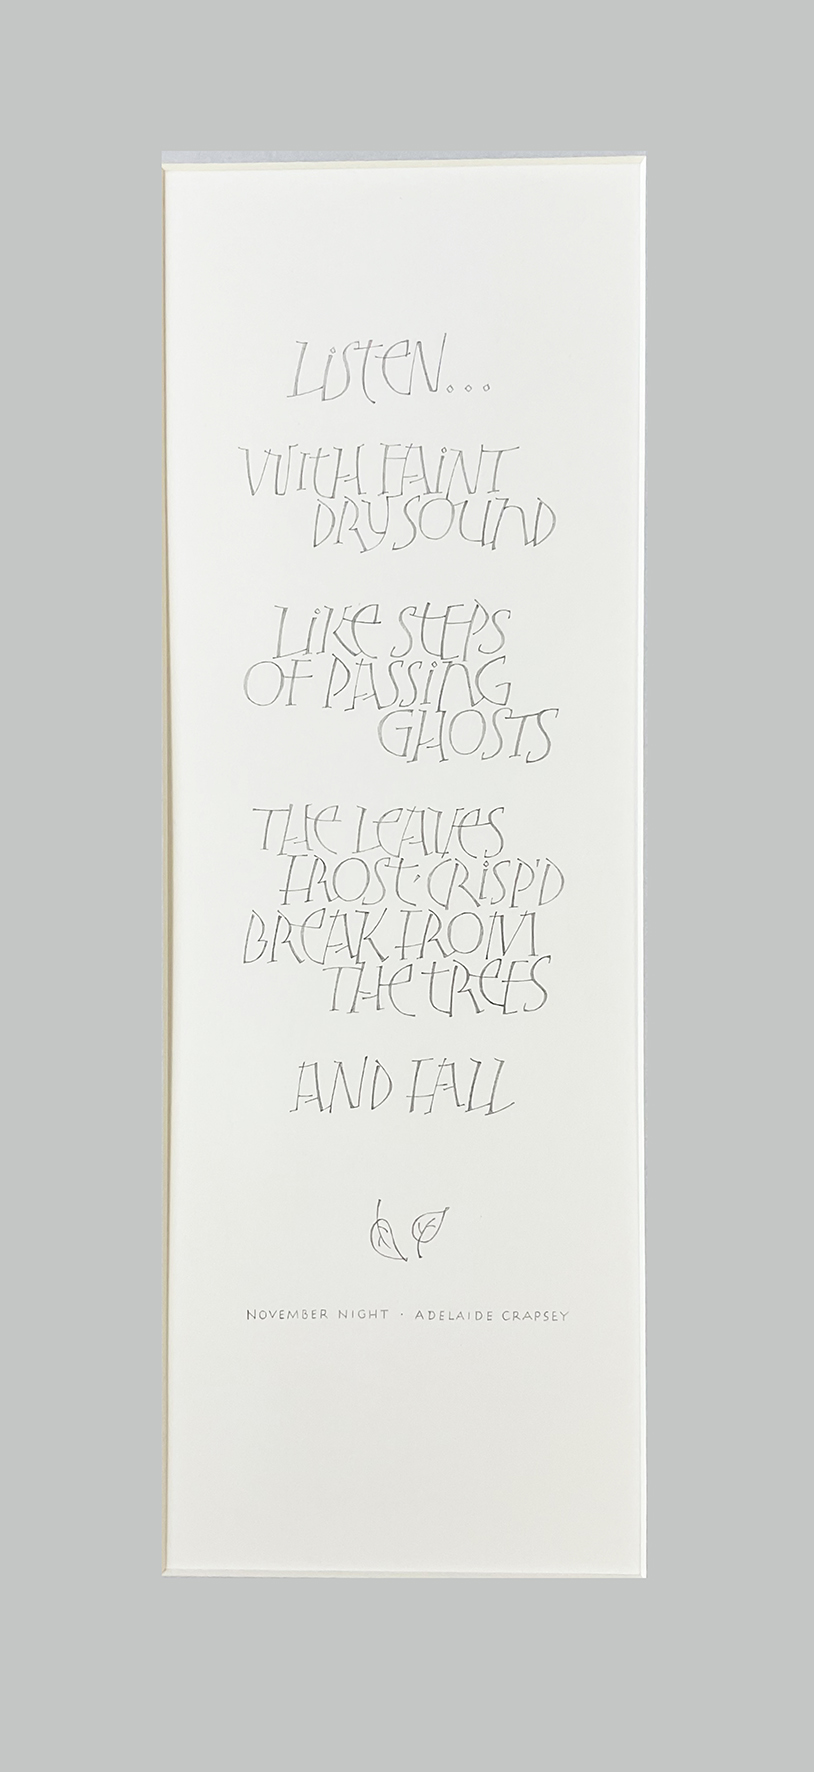 Listen...
With faint
dry sound
Like steps
of passing
ghosts
The leaves
frost-crisp'd
break from
the trees
and fall
NOVEMBER NIGHT · ADELAIDE CRAPSEY